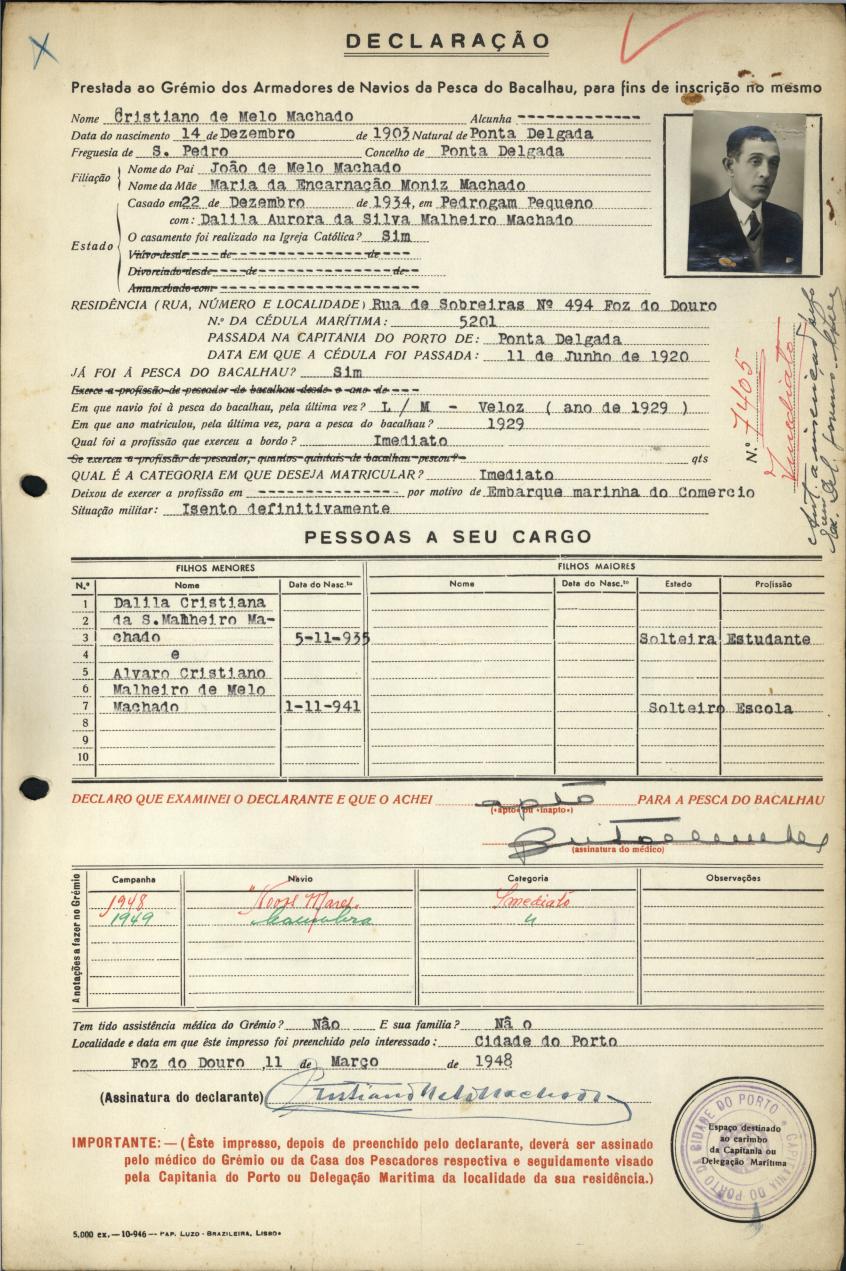 DECLARAÇÃO
Prestada ao Grémio dos Armadores de Navios da Pesca do Bacalhau, para fins de inscrição no mesmo
Nome Cristiano de Melo Machado Alcunha
Data do nascimento 14 de Dezembro de 1903 Natural de Ponta Delgada
Freguesia de S. Pedro Concelho de Ponta Delgada
Filiação
Nome do Pai João de Melo Machado
Nome da Mãe Maria da Encarnação Moniz Machado
Estado
Casado em 22 de Dezembro de 1934, em Pedrogam Pequeno
com: Dalila Aurora da Silva Malheiro Machado
O casamento foi realizado na Igreja Católica? Sim
Viúvo desde de de
Divorciado desde de de
Amancebado com
RESIDÊNCIA (RUA, NÚMERO E LOCALIDADE) Rua de Sobreiras Nº 494 Foz do Douro
N.º DA CÉDULA MARÍTIMA: 5201
PASSADA NA CAPITANIA DO PORTO DE: Ponta Delgada
DATA EM QUE A CÉDULA FOI PASSADA: 11 de Junho de 1920
JÁ FOI À PESCA DO BACALHAU? Sim
Exerce a profissão de pescador de bacalhau desde o ano de
Em que navio foi à pesca do bacalhau, pela última vez? L / M - Veloz ( ano de 1929 )
Em que ano matriculou, pela última vez, para a pesca do bacalhau? 1929
Qual foi a profissão que exerceu a bordo? Imediato
Se exerceu a profissão de pescador, quantos quintais de bacalhau pescou? qts
QUAL É A CATEGORIA EM QUE DESEJA MATRICULAR? Imediato
Deixou de exercer a profissão em por motivo de Embarque marinha do Comercio
Situação militar: Isento definitivamente
N.º 7405
Imediato
PESSOAS A SEU CARGO
FILHOS MENORES FILHOS MAIORES
N.º Nome Data do Nasc.to Nome Data do Nasc.to Estado Profissão
1 Dalila Cristiana
2 da S.Malheiro Ma-
3 chado 5-11-935 Solteira Estudante
4 e
5 Alvaro Cristiano
6 Malheiro de Melo
7 Machado 1-11-941 Solteiro Escola
8
9
10
DECLARO QUE EXAMINEI O DECLARANTE E QUE O ACHEI apto PARA A PESCA DO BACALHAU
(«apto» ou «inapto»)
(assinatura do médico)
Anotações a fazer no Grémio
Campanha Navio Categoria Observações
1948 Imediato
1949 "
Tem tido assistência médica do Grémio? Não E sua família? Nã o
Localidade e data em que êste impresso foi preenchido pelo interessado: Cidade do Porto
Foz do Douro ,11 de Março de 1948
(Assinatura do declarante) Cristiano Melo Machado
IMPORTANTE: — (Êste impresso, depois de preenchido pelo declarante, deverá ser assinado
pelo médico do Grémio ou da Casa dos Pescadores respectiva e seguidamente visado
pela Capitania do Porto ou Delegação Marítima da localidade da sua residência.)
CAPITANIA DO PORTO DA CIDADE DO PORTO
Espaço destinado
ao carimbo
da Capitania ou
Delegação Marítima
5.000 ex. — 10-946 — PAP. LUZO-BRAZILEIRA, LISBOA